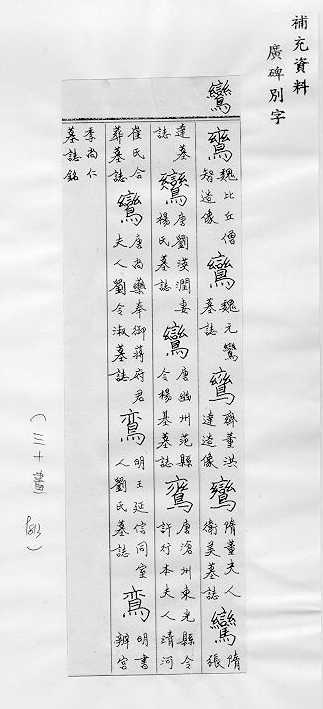 補充資料
廣碑別字
鸞
鸞 魏比丘僧智造像 鸞 魏元鸞墓誌 鸞 齊董洪達造像 鸞 隋董夫人衛美墓誌 鸞 隋張
達墓誌 鸞 唐劉漢潤妻楊氏墓誌 鸞 唐幽州范縣令楊基墓誌 鸾 唐滄州東光縣令許行本夫人清河
崔氏合葬墓誌 鸞 唐尚藥奉御蔣府君夫人劉令淑墓誌 鸾 明王延信同室人劉氏墓誌 鸾 明書辦官
李尚仁墓誌銘